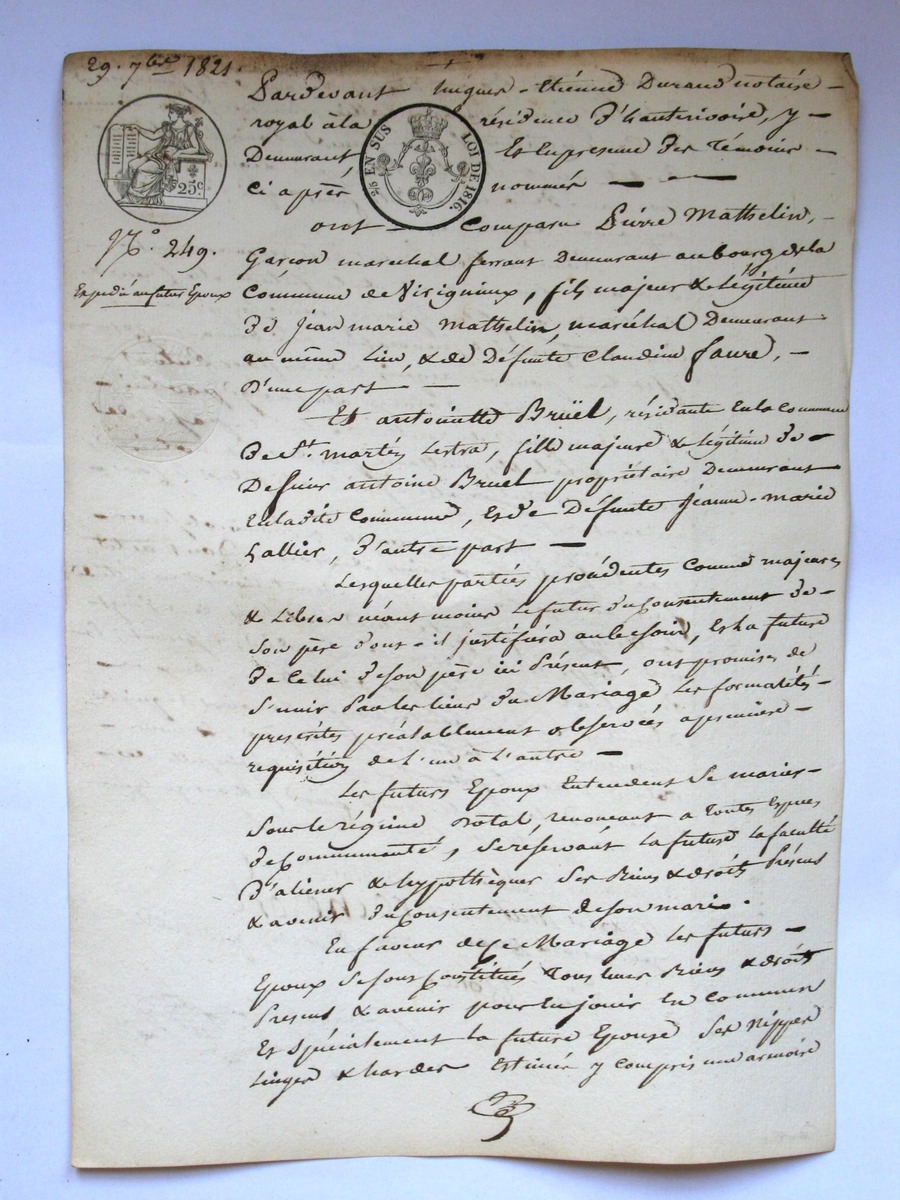 29. 7bre 1821.
Pardevant hugues-Etienne Durand notaire -
royal à la résidence d'hauterivoire, y -
Demeurant Et en presence des Témoins -
ci après nommés — —
25 EN SUS LOI DE 1816.
25c
ont - Comparu Pierre Mathelin, -
N.° 249.
Garçon maréchal ferrant Demeurant au bourg de la
Expedié au futur Epoux
Commune de Virigneux, fils majeur & légitime
de Jean marie Mathelin, maréchal Demeurant
au même Lieu, & de Défunte Claudine faure, -
D'une part —
Et antoinette Brüel, résidante en la commune
De St. martin Lestra, fille majeure & légitime de -
Defunt antoine Bruel propriétaire Demeurant
En la dite Commune, Et de Défunte Jeanne-marie
Lallier, d'autre part —
Lesquelles parties procédentes comme majeures
& Libres néant moins Le futur du Consentement de -
Son père dont - il justifiera au besoin, Et la future
De Celui de son père ici Présent, ont promis de
S'unir Par les liens du Mariage Les formalités -
prescrites préalablement observées a première -
requisition de l'un à l'autre —
Les futurs Epoux Entendent Se marier -
Sous le régime Dotal, renoncant a Toutes Especes
de Communauté, Se réservant La future La faculté
D'aliéner & hypothèquer Ses Biens & droits Présens
& avenir du Consentement de son mari.
En faveur de Ce Mariage Les futurs -
Epoux Se sont Constitués Tous leurs Biens & droits
Présens & avenir pour En jouir En Commun
Et Spécialement La future Epouse Ses Nippes
Linges & hardes Estimés y compris une armoire